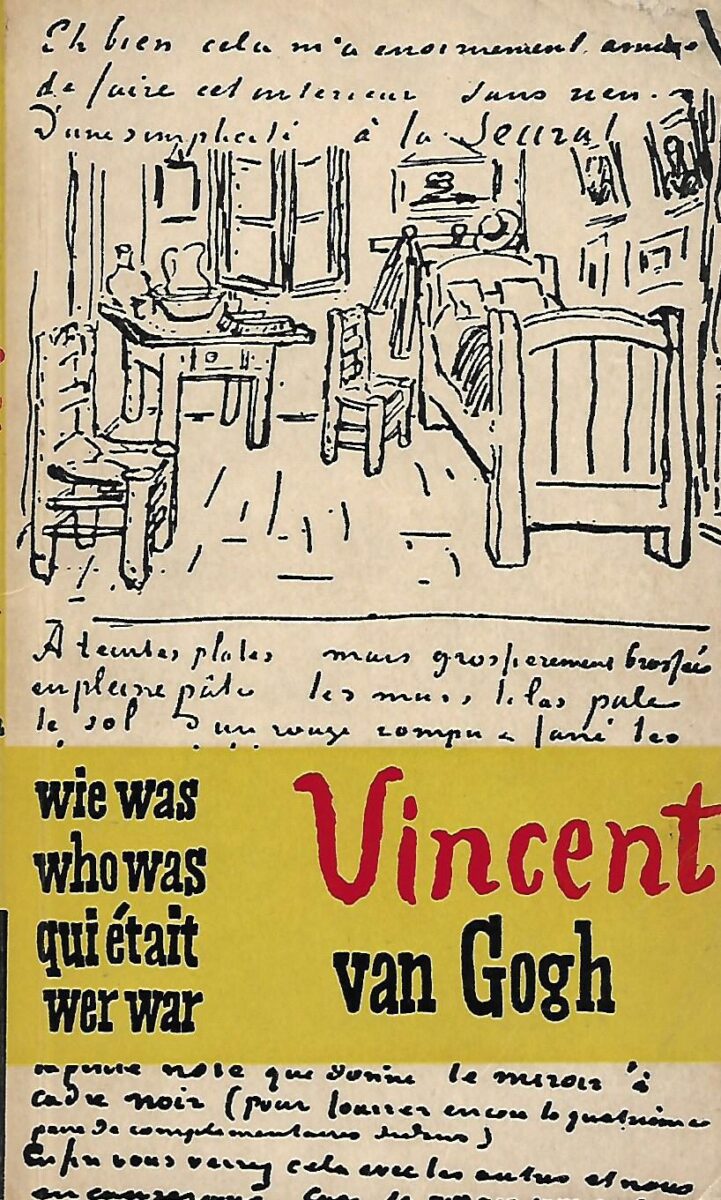 Eh bien cela m'a enormement amusé
de faire cet interieur sans rien.
D'une simplicité à la Seurat
A teintes plates mais grossierement brossées
en pleine pâte les murs lilas pale
le sol d'un rouge rompu & fané les
wie was
who was
qui était
wer war
Vincent
van Gogh
la petite note que donne le miroir à
cadre noir (pour fourrer encore la quatrième
paire de complementaires dedans)
Enfin vous verrez cela avec les autres et nous
en causerons